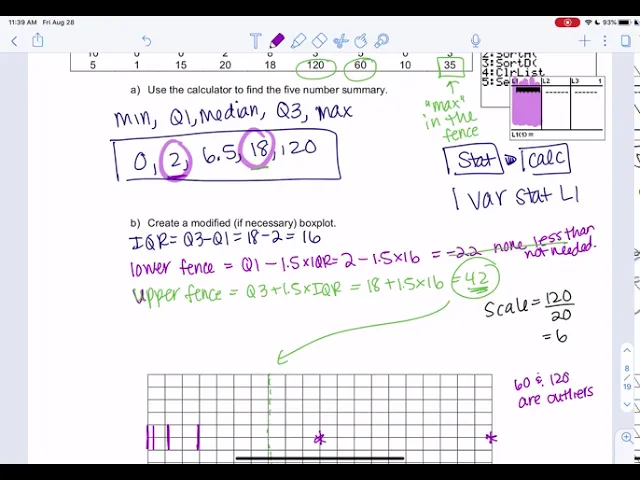 11:39 AM Fri Aug 28
93%
10 0 10 0 0 3
5 1 15 20 18 120 60 35
2:SortA(
3:SortD(
4:ClrList
5:Se
L1 L2 L3 1
L1(1)=
a) Use the calculator to find the five number summary.
min, Q1, median, Q3, max
0, 2, 6.5, 18, 120
"max"
in the
fence
Stat calc
1 var stat L1
b) Create a modified (if necessary) boxplot.
IQR= Q3-Q1= 18-2= 16
lower fence = Q1 - 1.5×IQR= 2 - 1.5×16 = -22 none less than
not needed.
upper fence = Q3+1.5×IQR = 18+1.5×16 = 42
Scale= 120/20
= 6
60 & 120
are outliers
8
19